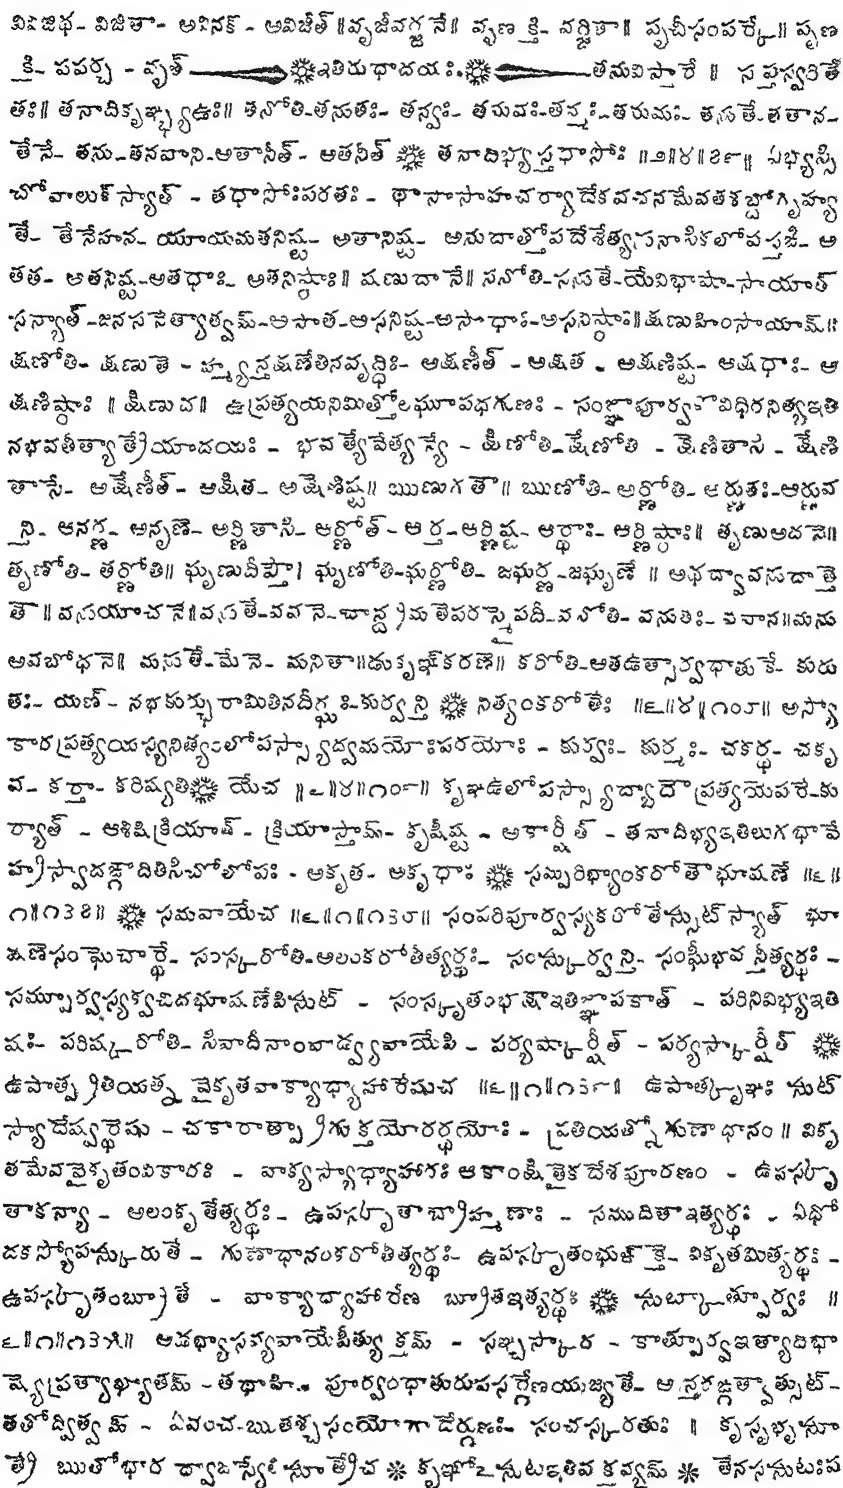 విజిథ- విజితా- అవినక్ - అవిజీత్ ॥ వృజీవర్జనే॥ వృణ క్తి- వర్జితా॥ పృచీసంపర్కే॥ పృణ
క్తి- పపర్చ - వృశ్ ఇతిరుధాదయః. తనువిస్తారే ॥ సప్తస్వరితే
తః॥ తనాదికృఞ్భ్యఉః॥ తనోతి-తనుతః- తన్వః- తనువః-తన్మః-తనుమః- తనుతే-తతాన-
తేనే- తను-తనవాని-అతానీత్- అతనీత్ ❋ తనాదిభ్యస్తథాసోః ॥౨॥౪॥౭౯॥ ఏభ్యస్సి
చోవాలుక్ స్యాత్ - తథాసోఃపరతః- థాసాసాహచర్యాదేకవచనమేవతశబ్దోగృహ్య
తే- తేనేహన- యూయమతనిష్ట- అతానిష్ట- అనుదాత్తోపదేశేత్యనునాసికలోపస్తఙి- అ
తత- అతనిష్ట-అతథాః- అతనిష్ఠాః॥ షణుదానే॥ సనోతి-సనుతే-యేవిభాషా-సాయాత్
సన్యాత్ -జనసనేత్యాత్వమ్-అసాత-అసనిష్ట-అసాథాః-అసనిష్ఠాః॥క్షణుహింసాయామ్॥
క్షణోతి- క్షణుతే - హ్మ్యన్తక్షణేతినవృద్ధిః- అక్షణీత్ - అక్షత - అక్షణిష్ట- అక్షథాః- అ
క్షణిష్ఠాః ॥ క్షిణుచ॥ ఉప్రత్యయనిమిత్తోలఘూపధగుణః - సంజ్ఞాపూర్వకోవిధిరనిత్యఇతి
నభవతీత్యాత్రేయాదయః - భవత్యేవేత్యన్యే - క్షిణోతి-క్షేణోతి - క్షేణితాసి - క్షేణి
తాసే- అక్షేణీత్- అక్షిత- అక్షేణిష్ట॥ ఋణుగతౌ॥ ఋణోతి- అర్ణోతి- అర్ణుతః-అర్ణువ
న్తి- ఆనర్ణ- ఆనృణే- అర్ణితాసి- ఆర్ణోత్- ఆర్త-ఆర్ణిష్ట- ఆర్థాః- ఆర్ణిష్ఠాః॥ తృణుఅదనే॥
తృణోతి- తర్ణోతి॥ ఘృణుదీప్తౌ। ఘృణోతి-ఘర్ణోతి- జఘర్ణ-జఘృణే ॥ అథద్వావనుదాత్తే
తౌ॥ వనుయాచనే॥వనుతే-వవనే-చాన్ద్రమతేపరస్మైపదీ-వనోతి- వనుతః- వవాన॥మను
అవబోధనే॥ మనుతే-మేనే- మనితా॥డుకృఞ్ కరణే॥ కరోతి-అతఉత్సార్వధాతుకే- కురు
తః- యణ్- నభకుర్ఛురామితినదీర్ఘః-కుర్వన్తి ❋ నిత్యంకరోతేః ॥౬॥౪॥౧౦౮॥ అస్యో
కారప్రత్యయస్యనిత్యంలోపస్స్యాద్వమయోఃపరయోః - కుర్వః- కుర్మః- చకర్థ- చకృ
వ- కర్తా- కరిష్యతి❋ యేచ ॥౬॥౪॥౧౦౯॥ కృఞఉలోపస్స్యాద్యాదౌప్రత్యయేపరే-కు
ర్యాత్ - ఆశిషిక్రియాత్- క్రియాస్తామ్- కృషీష్ట - అకార్షీత్ - తనాదిభ్యఇతిలుగభావే
హ్రస్వాదఙ్గాదితిసిచోలోపః - అకృత- అకృథాః ❋ సమ్పరిభ్యాంకరోతౌభూషణే ॥౬॥
౧॥౧౩౭॥ ❋ సమవాయేచ ॥౬॥౧॥౧౩౮॥ సంపరిపూర్వస్యకరోతేస్సుట్ స్యాత్ భూ
షణేసంఘేచార్థే- సంస్కరోతి-అలంకరోతీత్యర్థః- సంస్కుర్వన్తి- సంఘీభవన్తీత్యర్థః -
సమ్పూర్వస్యక్వచిదభూషణేపిసుట్ - సంస్కృతంభక్షాఇతిజ్ఞాపకాత్ - పరినివిభ్యఇతి
షః- పరిష్కరోతి- సివాదీనాంవాడ్వ్యవాయేపి - పర్యష్కార్షీత్ - పర్యస్కార్షీత్ ❋
ఉపాత్ప్రతియత్న వైకృతవాక్యాధ్యాహారేషుచ ॥౬॥౧॥౧౩౯॥ ఉపాత్కృఞః సుట్
స్యాదేష్వర్థేషు - చకారాత్ప్రాగుక్తయోరర్థయోః - ప్రతియత్నోగుణాధానం॥ వికృ
తమేవవైకృతంవికారః - వాక్యస్యాధ్యాహారః ఆకాంక్షితైకదేశపూరణం - ఉపస్కృ
తాకన్యా - అలంకృతేత్యర్థః- ఉపస్కృతాబ్రాహ్మణాః - సముదితాఇత్యర్థః - ఏధో
దకస్యోపస్కురుతే- గుణాధానంకరోతీత్యర్థః- ఉపస్కృతంభుఙ్క్తే- వికృతమిత్యర్థః -
ఉపస్కృతంబ్రూతే - వాక్యాధ్యాహారేణ బ్రూతఇత్యర్థః ❋ సుట్కాత్పూర్వః ॥
౬॥౧॥౧౩౫॥ అడభ్యాసవ్యవాయేపీత్యుక్తమ్ - సఞ్చస్కార - కాత్పూర్వఇత్యాదిభా
ష్యేప్రత్యాఖ్యాతమ్ - తథాహి- పూర్వంధాతురుపసర్గేణయుజ్యతే- అన్తరఙ్గత్వాత్సుట్-
తతోద్విత్వమ్ - ఏవంచ-ఋతశ్చసంయోగాదేర్గుణః- సంచస్కరతుః ॥ కృసృభృసూ
త్రే ఋతోభారద్వాజస్యేతిసూత్రేచ ❋ కృఞోఽసుటఇతివక్తవ్యమ్ ❋ తేనససుటఃప